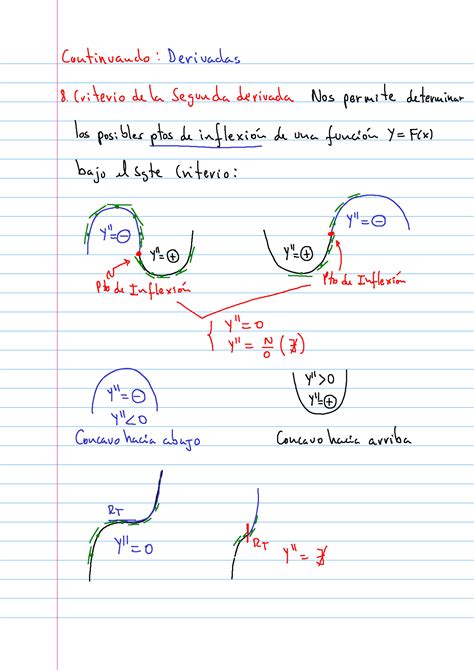 Continuando: Derivadas
8. Criterio de la Segunda derivada Nos permite determinar
los posibles ptos de inflexión de una función Y = F(x)
bajo el sgte Criterio:
Y''=⊖
Y''=⊕
Y''=⊕
Y''=⊖
Pto de Inflexión
Pto de Inflexión
Y''=0
Y''= N/0 (∄)
Y''=⊖
Y''<0
Y''>0
Y''=⊕
Concavo hacia abajo
Concavo hacia arriba
RT
Y''=0
RT
Y''=∄